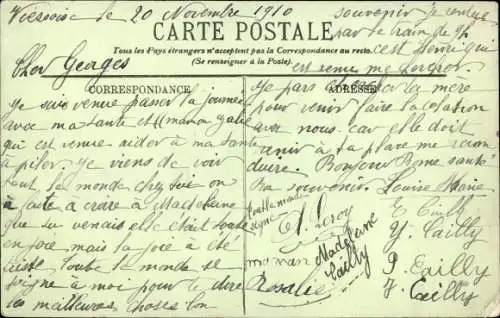 Viessoix le 20 Novembre 1910
souvenir je rentre
par le train de 9h
c'est Henri qui
est venue me
CARTE POSTALE
Tous les Pays étrangers n'acceptent pas la Correspondance au recto.
(Se renseigner à la Poste).
Cher Georges
CORRESPONDANCE
Je suis venue passer la journée
avec ma tante et maman
qui est venue aider à ma tante
à piler je viens de voir
tout le monde chez toi on
a fait à croire à Madeleine
que tu venais elle était toute
en joie mais la joie a été
triste toute le monde se
à moi pour te dire
les meilleures choses bon
ADRESSE
Je pars chercher la mère
pour venir faire la colation
avec nous car elle doit
venir à ta place me recon
duire. Bonjour de ma tante
Bon souvenir. Louise Marie
tout le monde
signe
A. Leroy
maman
Rosalie
Madeleine
Cailly
E Cailly
Y. Cailly
P. Cailly
J. Cailly